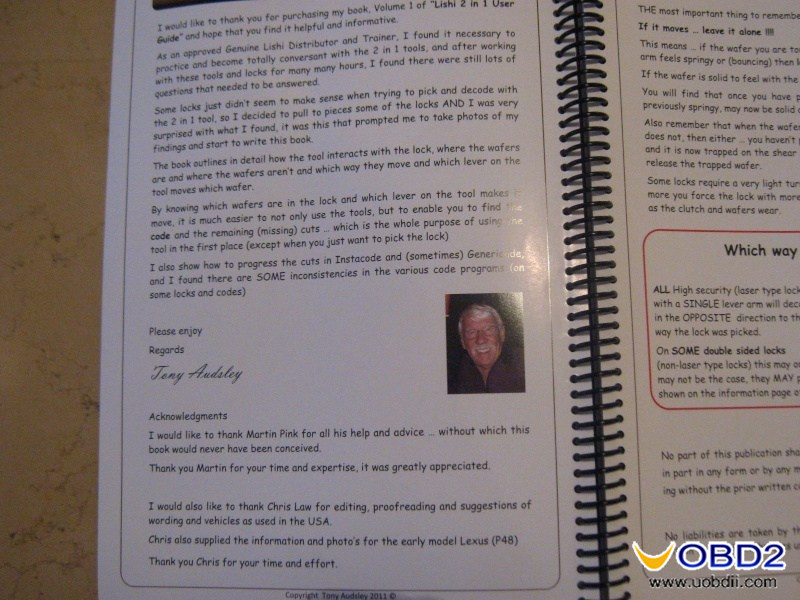 I would like to thank you for purchasing my book, Volume 1 of "Lishi 2 in 1 User
Guide" and hope that you find it helpful and informative.
As an approved Genuine Lishi Distributor and Trainer, I found it necessary to
practice and become totally conversant with the 2 in 1 tools, and after working
with these tools and locks for many many hours, I found there were still lots of
questions that needed to be answered.
Some locks just didn't seem to make sense when trying to pick and decode with
the 2 in 1 tool, so I decided to pull to pieces some of the locks AND I was very
surprised with what I found, it was this that prompted me to take photos of my
findings and start to write this book.
The book outlines in detail how the tool interacts with the lock, where the wafers
are and where the wafers aren't and which way they move and which lever on the
tool moves which wafer.
By knowing which wafers are in the lock and which lever on the tool makes it
move, it is much easier to not only use the tools, but to enable you to find the
code and the remaining (missing) cuts ... which is the whole purpose of using the
tool in the first place (except when you just want to pick the lock)
I also show how to progress the cuts in Instacode and (sometimes) Genericode,
and I found there are SOME inconsistencies in the various code programs (on
some locks and codes)
Please enjoy
Regards
Tony Audsley
Acknowledgments
I would like to thank Martin Pink for all his help and advice ... without which this
book would never have been conceived.
Thank you Martin for your time and expertise, it was greatly appreciated.
I would also like to thank Chris Law for editing, proofreading and suggestions of
wording and vehicles as used in the USA.
Chris also supplied the information and photo's for the early model Lexus (P48)
Thank you Chris for your time and effort.
Copyright Tony Audsley 2011 ©
THE most important thing to remember
If it moves ... leave it alone !!!!
This means ... if the wafer you are
arm feels springy or (bouncing) then
If the wafer is solid to feel with the
You will find that once you have
previously springy, may now be solid
Also remember that when the wafer
does not, then either ... you haven't
and it is now trapped on the shear
release the trapped wafer.
Some locks require a very light
more you force the lock with more
as the clutch and wafers wear.
Which way
ALL High security (laser type
with a SINGLE lever arm will
in the OPPOSITE direction to
way the lock was picked.
On SOME double sided locks
(non-laser type locks) this may
may not be the case, they MAY
shown on the information page
No part of this publication
in part in any form or by any
ing without the prior written
No liabilities are taken by
UOBD2
www.uobdii.com